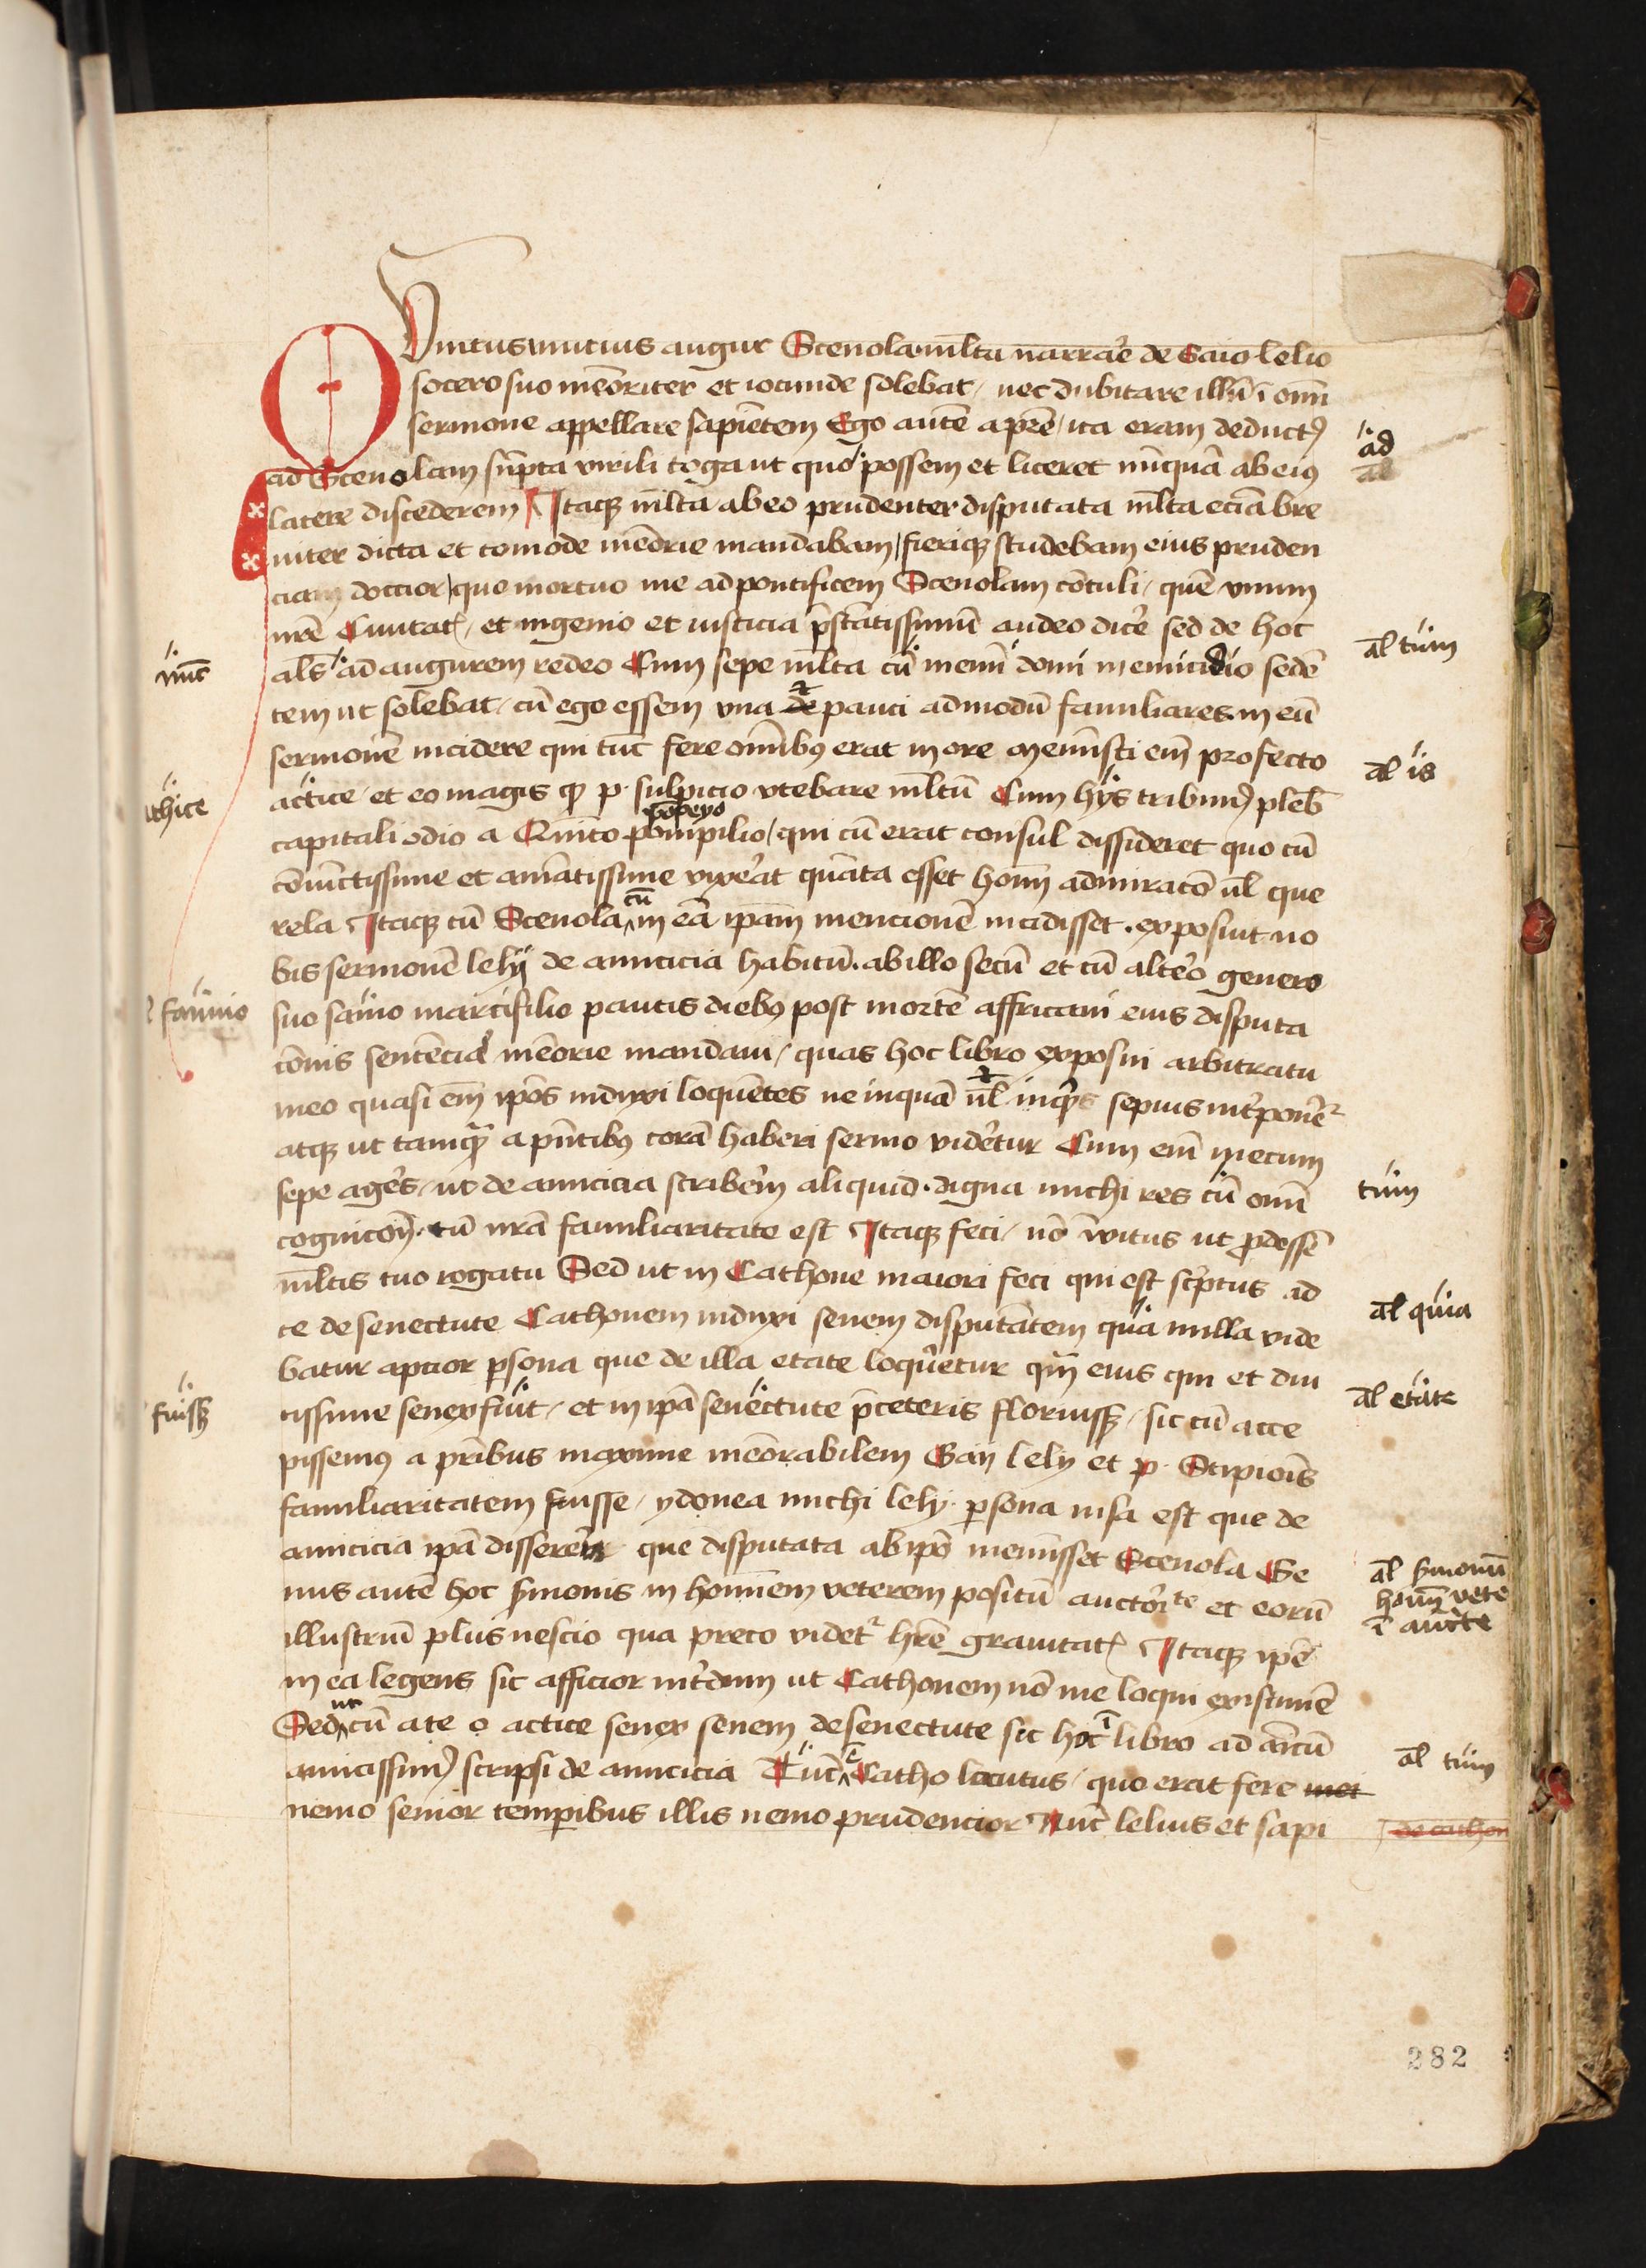 Quintus mucius augur Sceuola mlta narrare de Gaio lelio
socero suo meoriter et iocunde solebat / nec dubitare illū ī omī
sermone appellare sapiētem Ego autē a prē / ita eram deductꝰ
ad Sceuolam sūpta virili toga ut quo possem et liceret nūquā ab eiꝰ
latere discederem Itaqꝫ mlta ab eo prudenter disputata mlta eciā bre
uiter dicta et comode meōrie mandabam / fieriqꝫ studebam eius pruden
ciam doctior / quo mortuo me ad pontificem Sceuolam cōtuli / quē vnum
nrē Ciuitatꝭ / et ingenio et iusticia p̄stātissimū audeo dicē sed de hoc
als ad augurem redeo Cum sepe mlta cū memī domi in emiciclio sedē
tem ut solebat / cū ego essem vna de pauci admodū familiares in eū
sermonē incidere qui tūc fere omībꝰ erat in ore Meministi em̄ profecto
actice / et eo magis qꝫ p. sulpicio vtebare mltū Cum hys tribunꝰ pleb
popeyo
capitali odio a Quīto pompilio / qui cū erat consul dissideret quo cū
cōiūctissime et amātissime vixerat quāta esset homī admiracō ul que
rela Itaqꝫ cū Sceuola cū in eā ipām mencionē incidisset . exposuit no
bis sermonē lelij de amicicia habitū . ab illo secū et cū altero genero
suo fanio marci filio paucis diebꝰ post mortē affricani eius disputa
cōnis sentēcias meōrie mandaui / quas hoc libro exposui arbitratu
meo quasi em̄ ipōs induxi loquētes ne inquā ul inqt sepius int̄ponēr
atqꝫ ut tamqꝫ a pn̄tibꝰ corā haberi sermo videtur Cum em̄ mecum
sepe ageres / ut de amicicia scriberem aliquid . digna michi res cū omī
cognicōn̄ . tū nrā familiaritate est Itaqꝫ feci / nō ītus ut ꝓdessē
mltis tuo rogatu Sed ut in Cathone maiori feci qui est sc̄ptus ad
te de senectute Cathonem induxi senem disputātem quia nulla vide
batur aptior ꝑsona que de illa etate loqueretur qm̄ eius qui et diu
tissime senex fuit / et in ipā senectute p̄ceteris floruissꝫ / sic cū acce
pissemꝰ a pribus maxime meōrabilem Gaij lelij et p. Scipiois
familiaritatem fuisse / ydonea michi lelij ꝑsona uisa est que de
amicicia ipā dissereret que disputata ab ipō meminisset Sceuola Ge
nus autē hoc s̄monis in hominem veterem positū auctōrte et eorū
illustriū plus nescio quo preco videtr hrē grauitatꝭ Itaqꝫ ipē
in ea legens sic afficior int̄dum ut Cathonem nō me loqui existimē
Sed ut cū a te o actice senex senem de senectute sic hoc ī libro ad amicū
amicissimꝰ scripsi de amicicia Tūc ē Catho locutus / quo erat fere
nemo senior tempibus illis nemo prudencior Nūc lelius et sapi
ad
al tum
al is
tum
al quia
al etate
al s̄monū
homī vete
ī aucte
al tum
nūc
thice
fannio
fuissꝫ
282